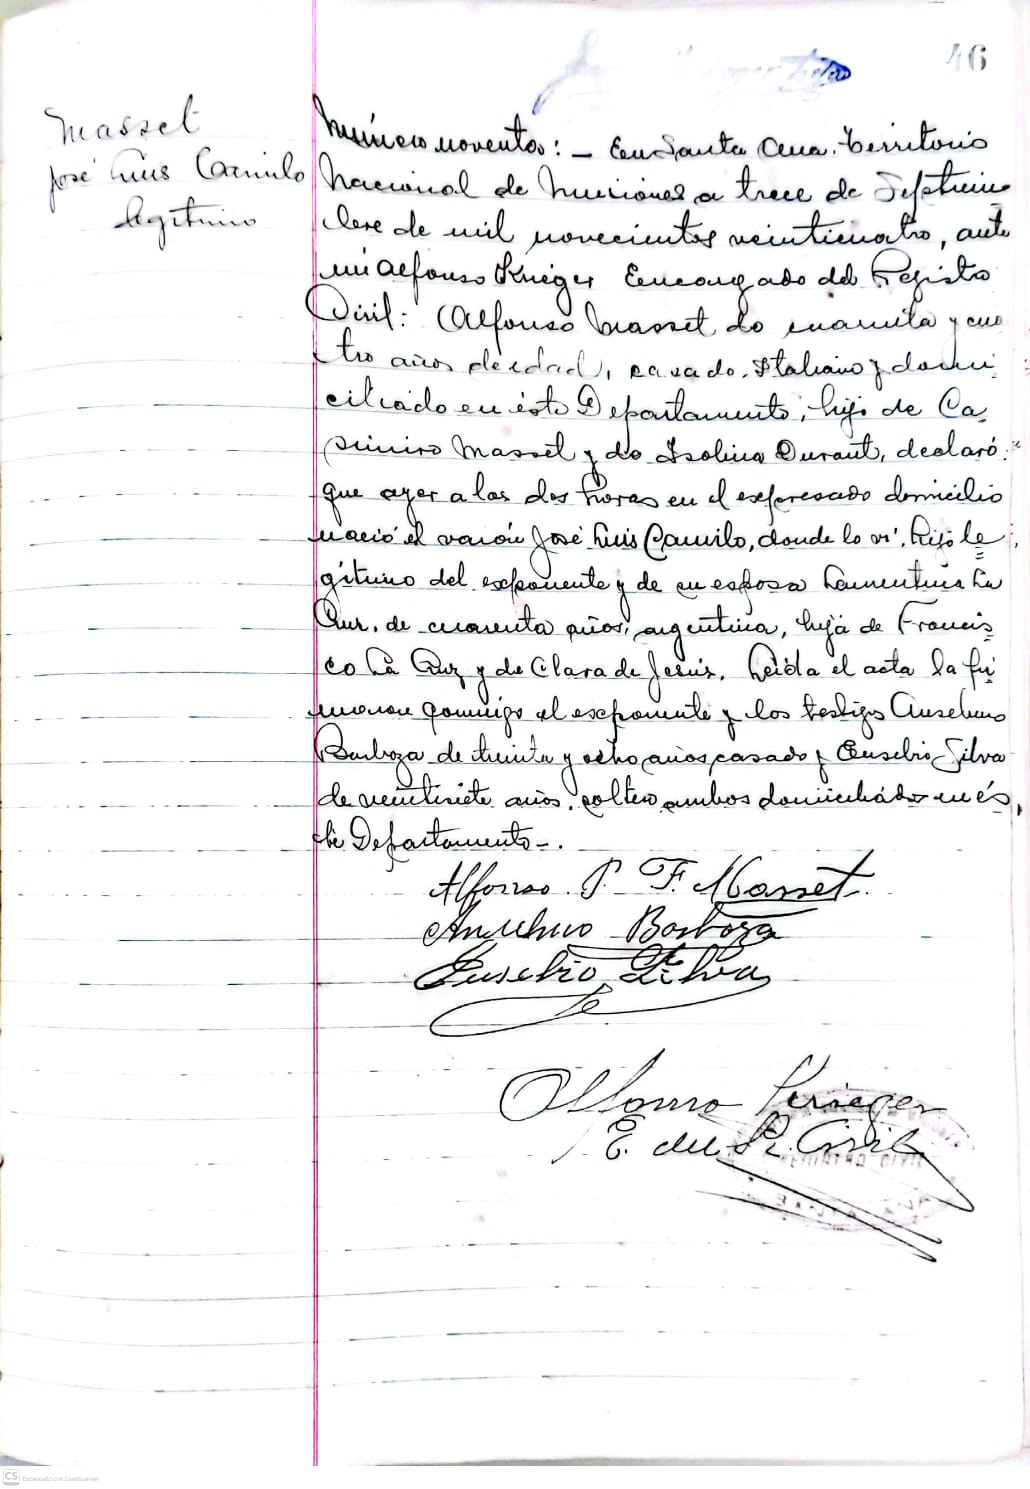 46
Masset
José Luis Camilo
legítimo
Número noventa: - En Santa Ana. Territorio
Nacional de Misiones a trece de Septiem
bre de mil novecientos veinticuatro, ante
mí Alfonso Krieger Encargado del Registro
Civil: Alfonso Masset de cuarenta y cua
tro años de edad, casado. Italiano y domi
ciliado en éste Departamento, hijo de Ca
simiro Masset y de Isolina Durant, declaró:
que ayer a las dos horas en el expresado domicilio
nació el varón José Luis Camilo, donde lo ví, hijo le
gítimo del exponente y de su esposa Laurentina La
Cruz, de cuarenta años, argentina, hija de Francis
co La Cruz y de Clara de Jesús. Leída el acta la fir
maron conmigo el exponente y los testigos Anselmo
Barboza de treinta y ocho años, casado y Eusebio Silva
de veintisiete años, soltero ambos domiciliados en és
te Departamento-.
Alfonso P. F. Masset.
Anselmo Barboza
Eusebio Silva
Alfonso Krieger
E. del R. Civil
CS Escaneado con CamScanner